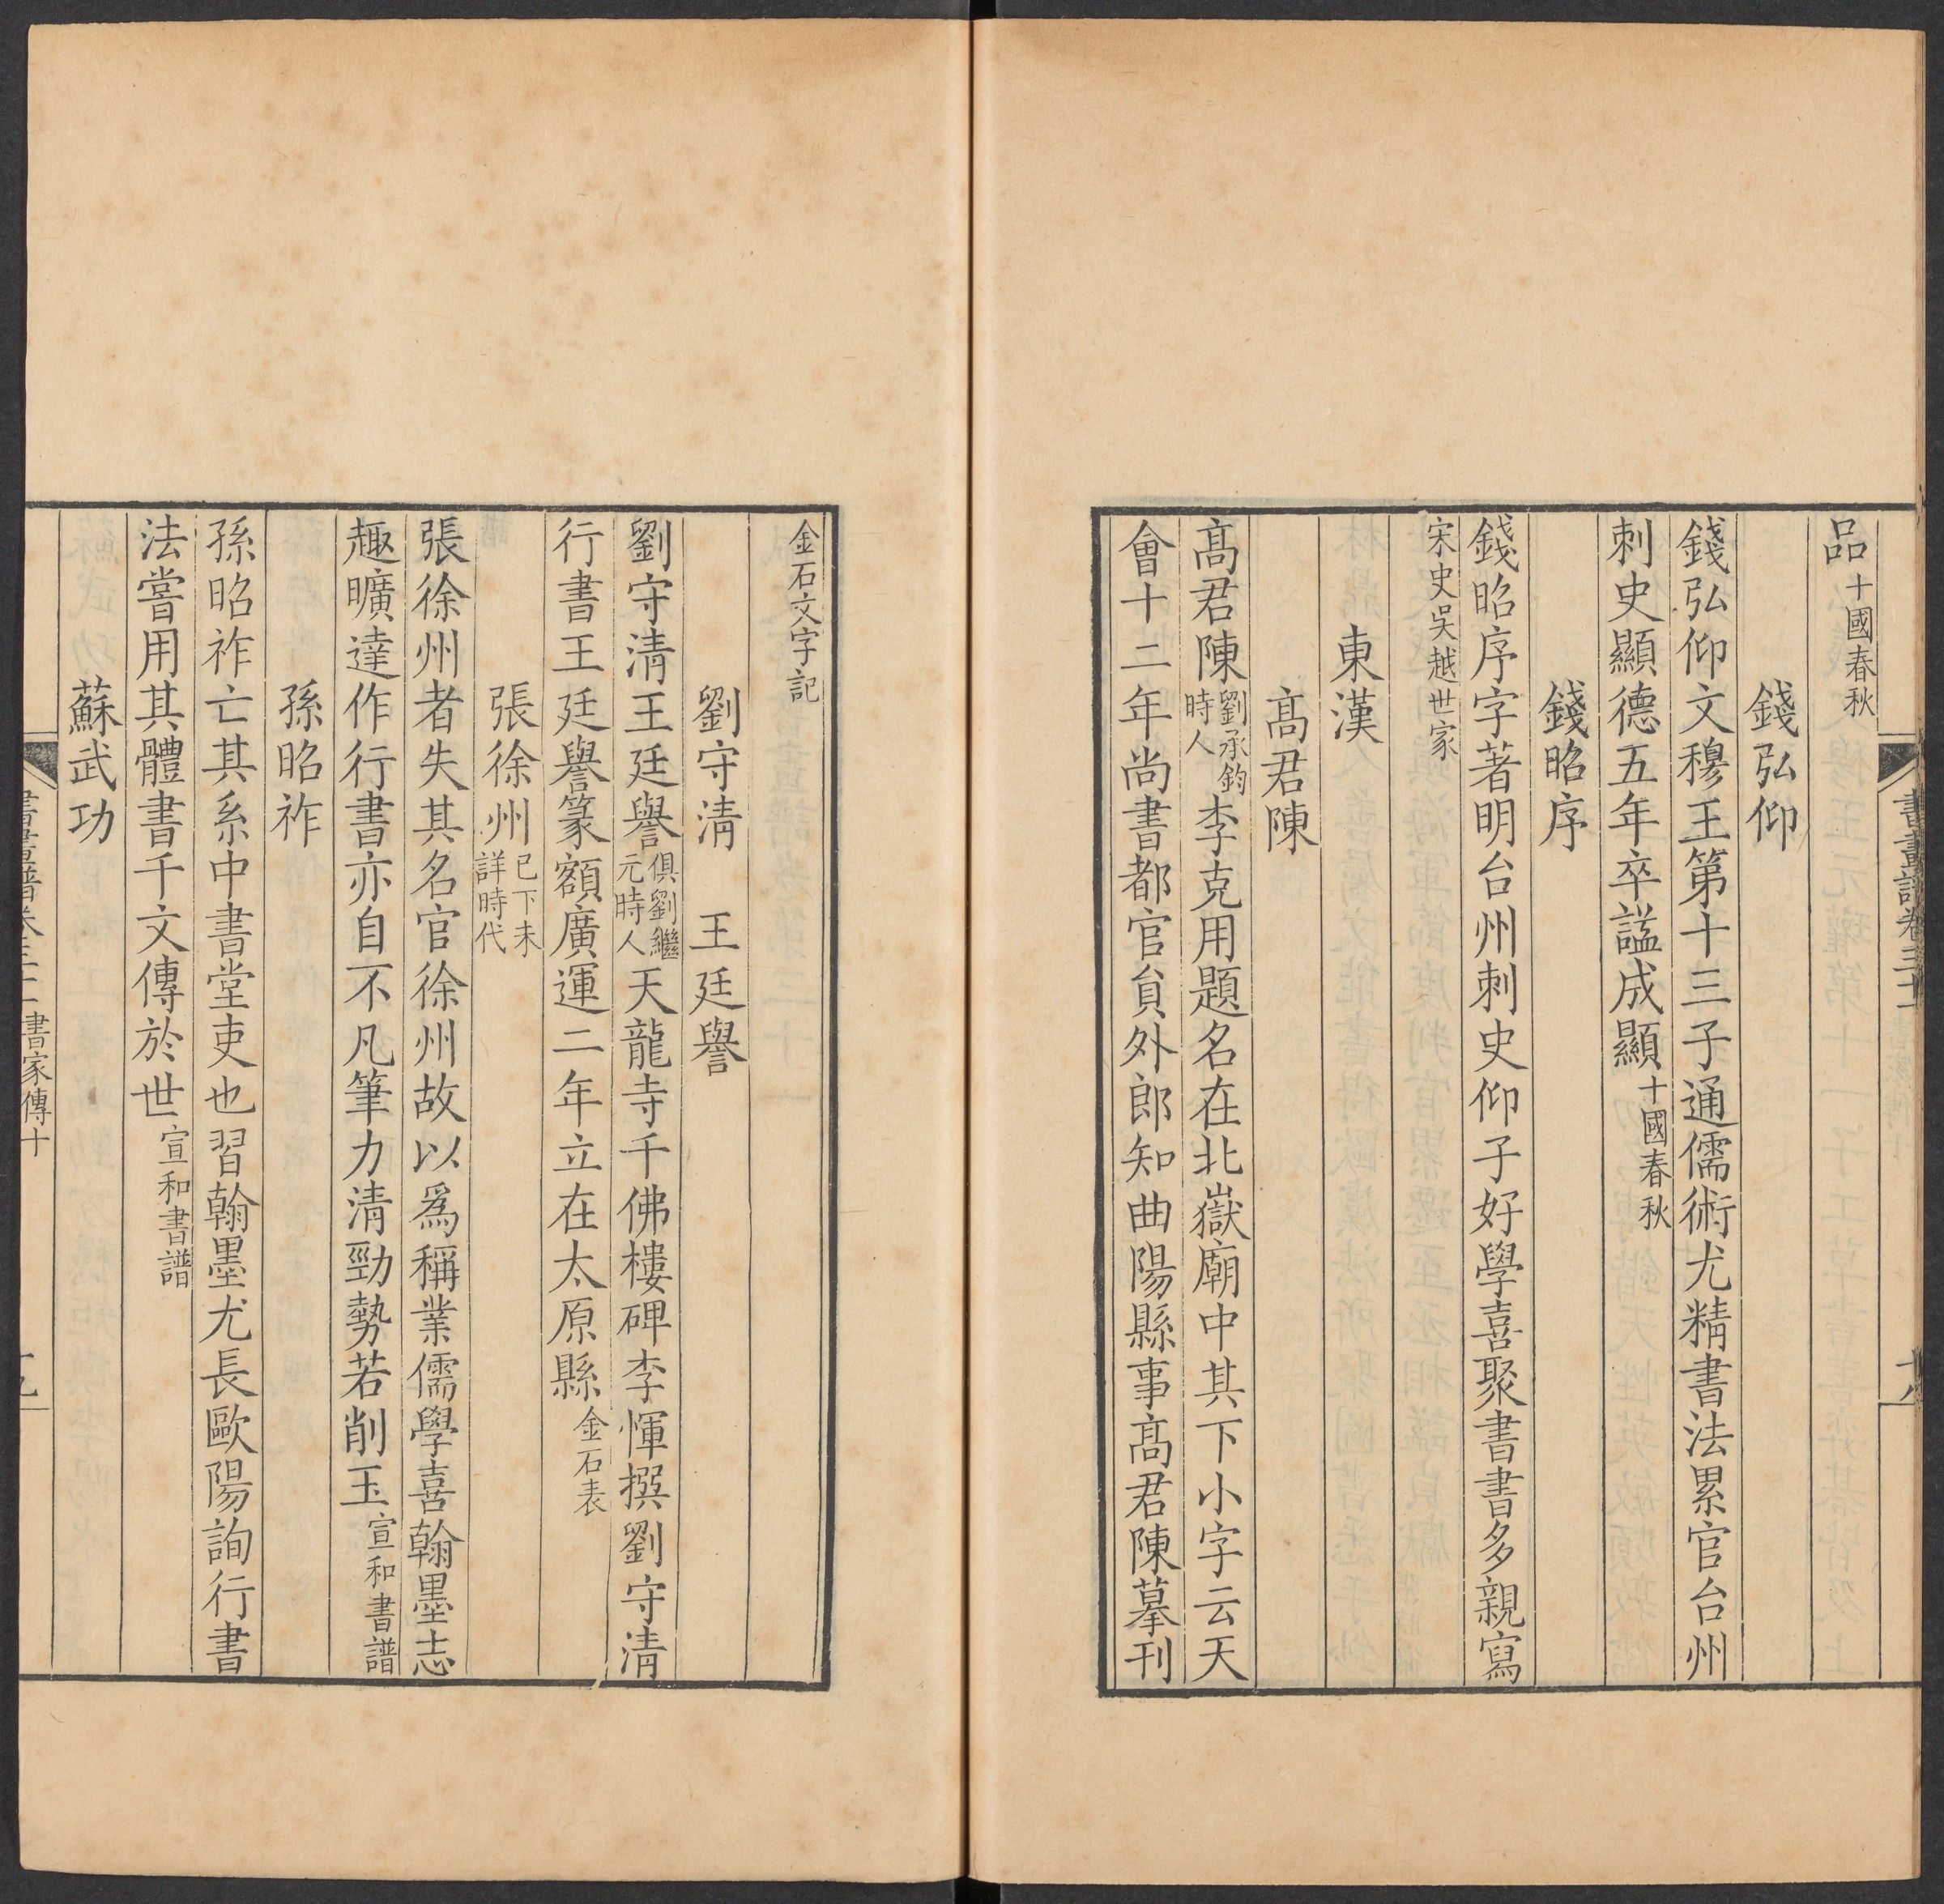 書畫譜卷三十二
十八
品十國春秋
錢弘仰
錢弘仰文穆王第十三子通儒術尤精書法累官台州
刺史顯德五年卒諡成顯十國春秋
錢昭序
錢昭序字著明台州刺史仰子好學喜聚書書多親寫
宋史吳越世家
東漢
髙君陳
髙君陳劉承鈞時人李克用題名在北嶽廟中其下小字云天
會十二年尚書都官貟外郎知曲陽縣事髙君陳摹刊
金石文字記
劉守淸 王廷譽
劉守淸王廷譽俱劉繼元時人天龍寺千佛樓碑李惲撰劉守淸
行書王廷譽篆額廣運二年立在太原縣金石表
張徐州已下未詳時代
張徐州者失其名官徐州故以爲稱業儒學喜翰墨志
趣曠達作行書亦自不凡筆力清勁勢若削玉宣和書譜
孫昭祚
孫昭祚亡其系中書堂吏也習翰墨尤長歐陽詢行書
法嘗用其體書千文傳於世宣和書譜
蘇武功
書畫譜卷三十二 書家傳十
十九